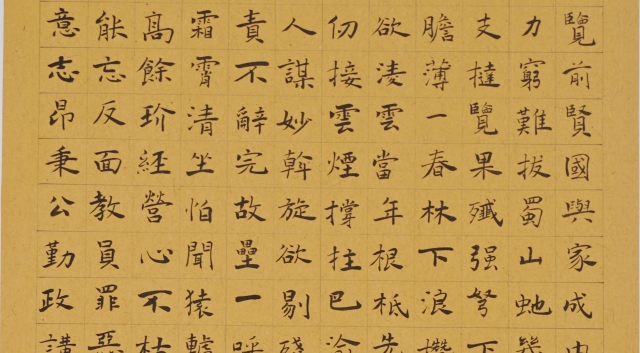 覽前賢國與家成由
力窮難拔蜀山虵幾
支撻覽果殲强弩下
膽薄一春林下浪
欲凌雲當年根柢先
仞接雲煙撐拄巴渝
人謀妙斡旋欲剔殘
責不辭完故壘一呼
霜霄清坐怕聞猿
高餘玠經營心不枯
能忘反面教員罪惡
意志昂秉公勤政講